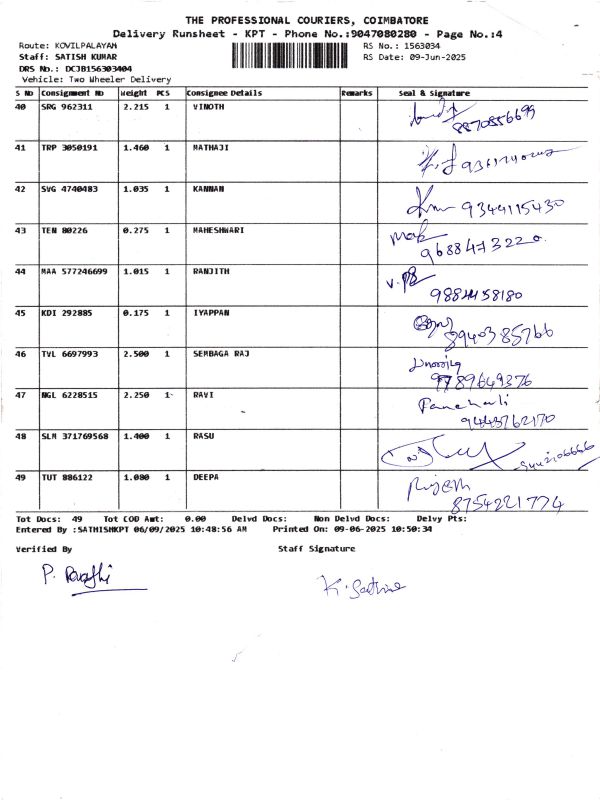 THE PROFESSIONAL COURIERS, COIMBATORE
Delivery Runsheet - KPT - Phone No.:9047080280 - Page No.:4
Route: KOVILPALAYAM RS No.: 1563034
Staff: SATISH KUMAR RS Date: 09-Jun-2025
DRS No.: DCJB156303404
Vehicle: Two Wheeler Delivery
S No Consignment No Weight PCS Consignee Details Remarks Seal & Signature
40 SRG 962311 2.215 1 VINOTH
8870856699
41 TRP 3050191 1.460 1 MATHAJI
42 SVG 4740483 1.035 1 KANNAN 9344115430
43 TEN 80226 0.275 1 MAHESHWARI
9688473220
44 MAA 577246699 1.015 1 RANJITH
9884458180
45 KDI 292885 0.175 1 IYAPPAN
8940385766
46 TVL 6697993 2.500 1 SEMBAGA RAJ
9789649376
47 NGL 6228515 2.250 1 RAVI
9443762170
48 SLM 371769568 1.400 1 RASU
49 TUT 886122 1.080 1 DEEPA
8754221774
Tot Docs: 49 Tot COD Amt: 0.00 Delvd Docs: Non Delvd Docs: Delvy Pts:
Entered By :SATHISHKPT 06/09/2025 10:48:56 AM Printed On: 09-06-2025 10:50:34
Verified By Staff Signature